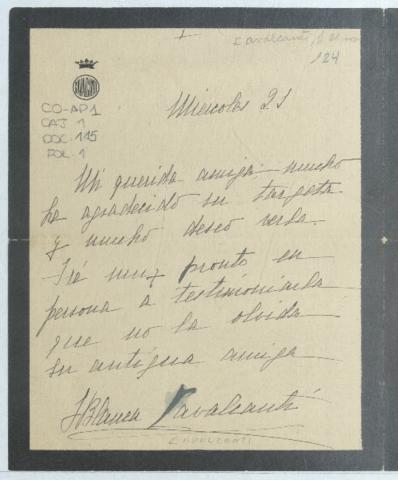 Cavalcanti, B.
124
CO-AP1
CAJ 1
DOC-115
FOL-1
Miercoles 21
Mi querida amiga: mucho
he agradecido su targeta
y mucho deseo verla.
Iré muy pronto en
persona a testimoniarla
que no la olvida
su antigua amiga
Blanca Cavalcanti
CAVALCANTI